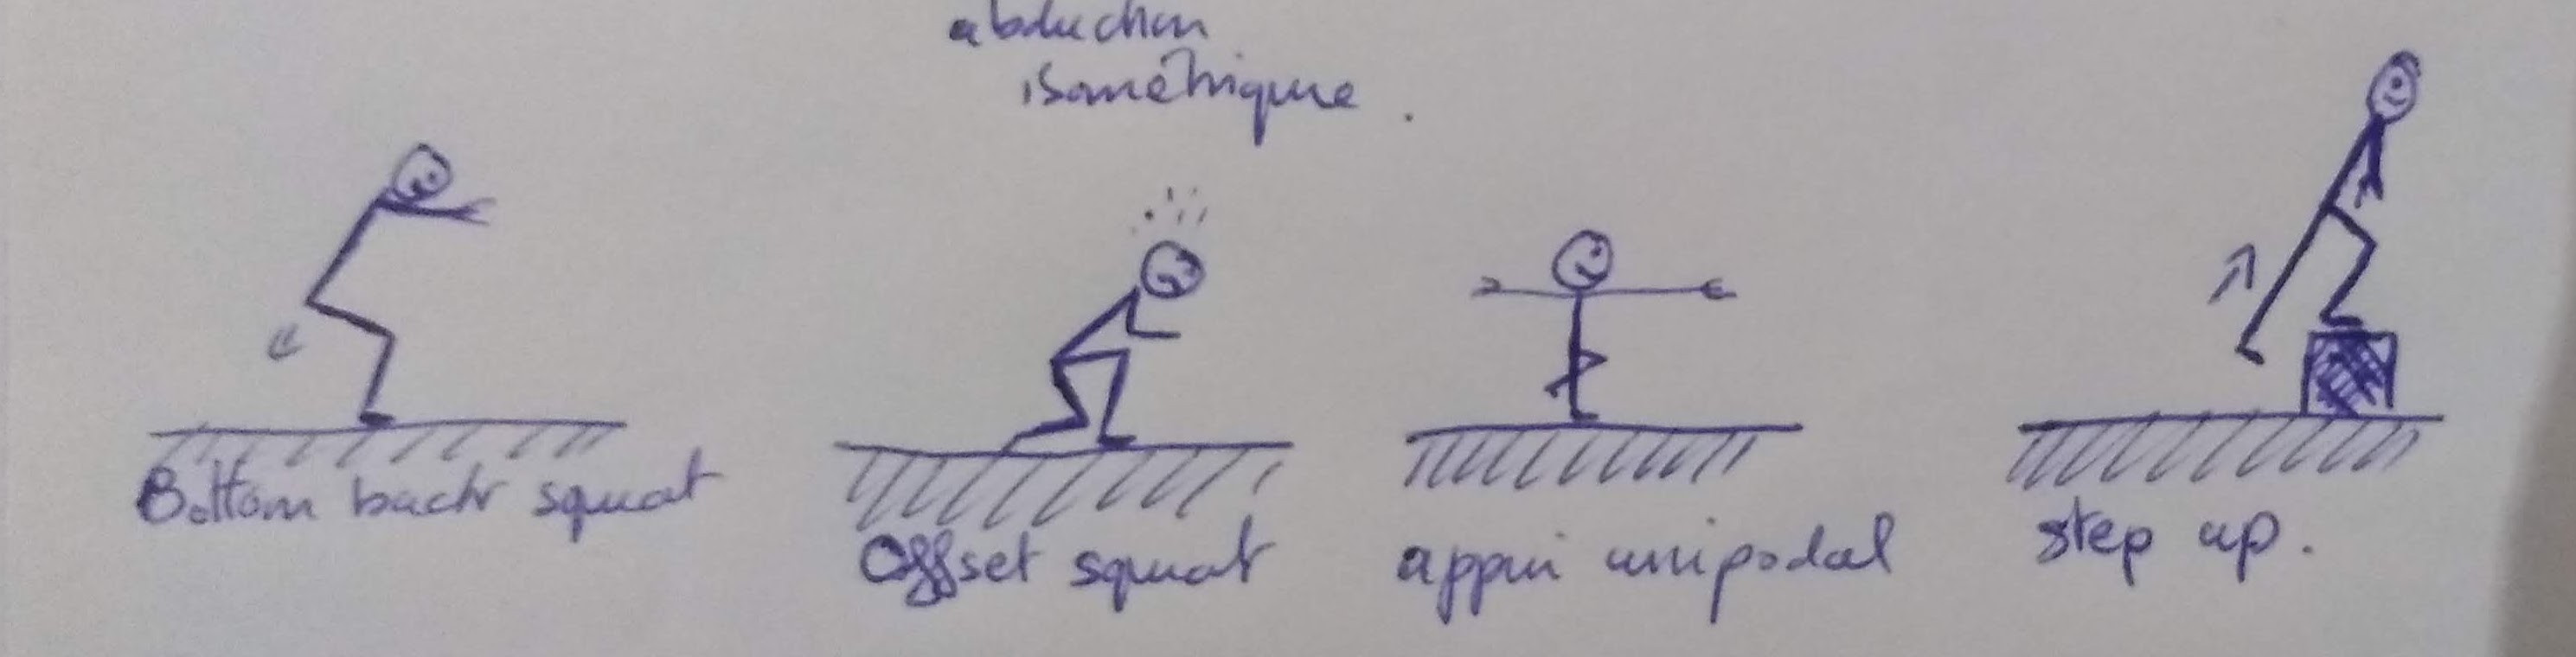 abduction
isométrique.
Bottom back squat
Offset squat
appui unipodal
step up.